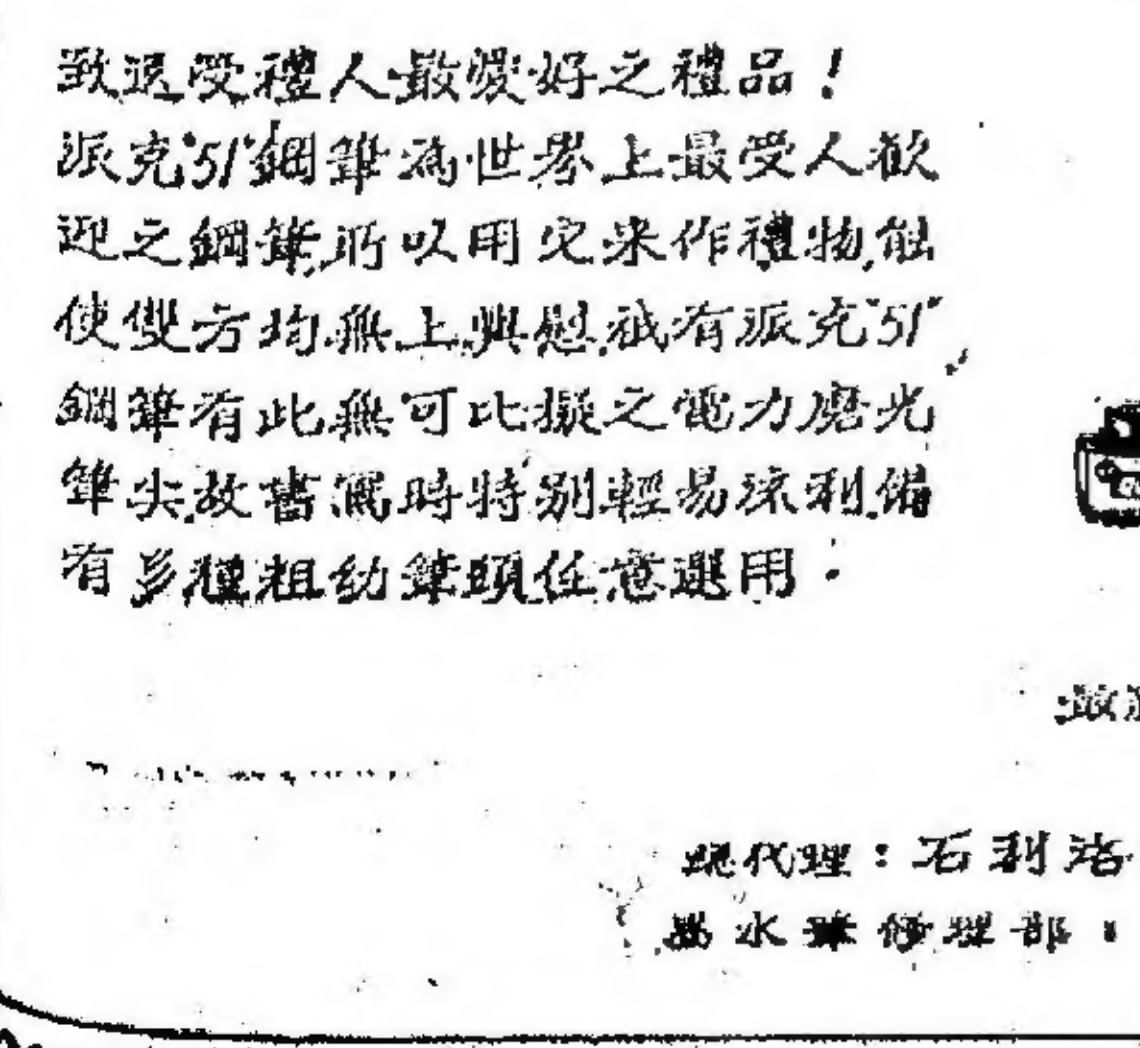 致送受禮人最愛好之禮品！
派克"51"鋼筆為世界上最受人歡
迎之鋼筆,所以用它來作禮物,能
使雙方均無上興慰,祇有派克"51"
鋼筆有此無可比擬之電力磨光
筆尖,故書寫時特別輕易流利,備
有多種粗幼筆頭任意選用．
總代理：石利洛
墨水筆修理部：